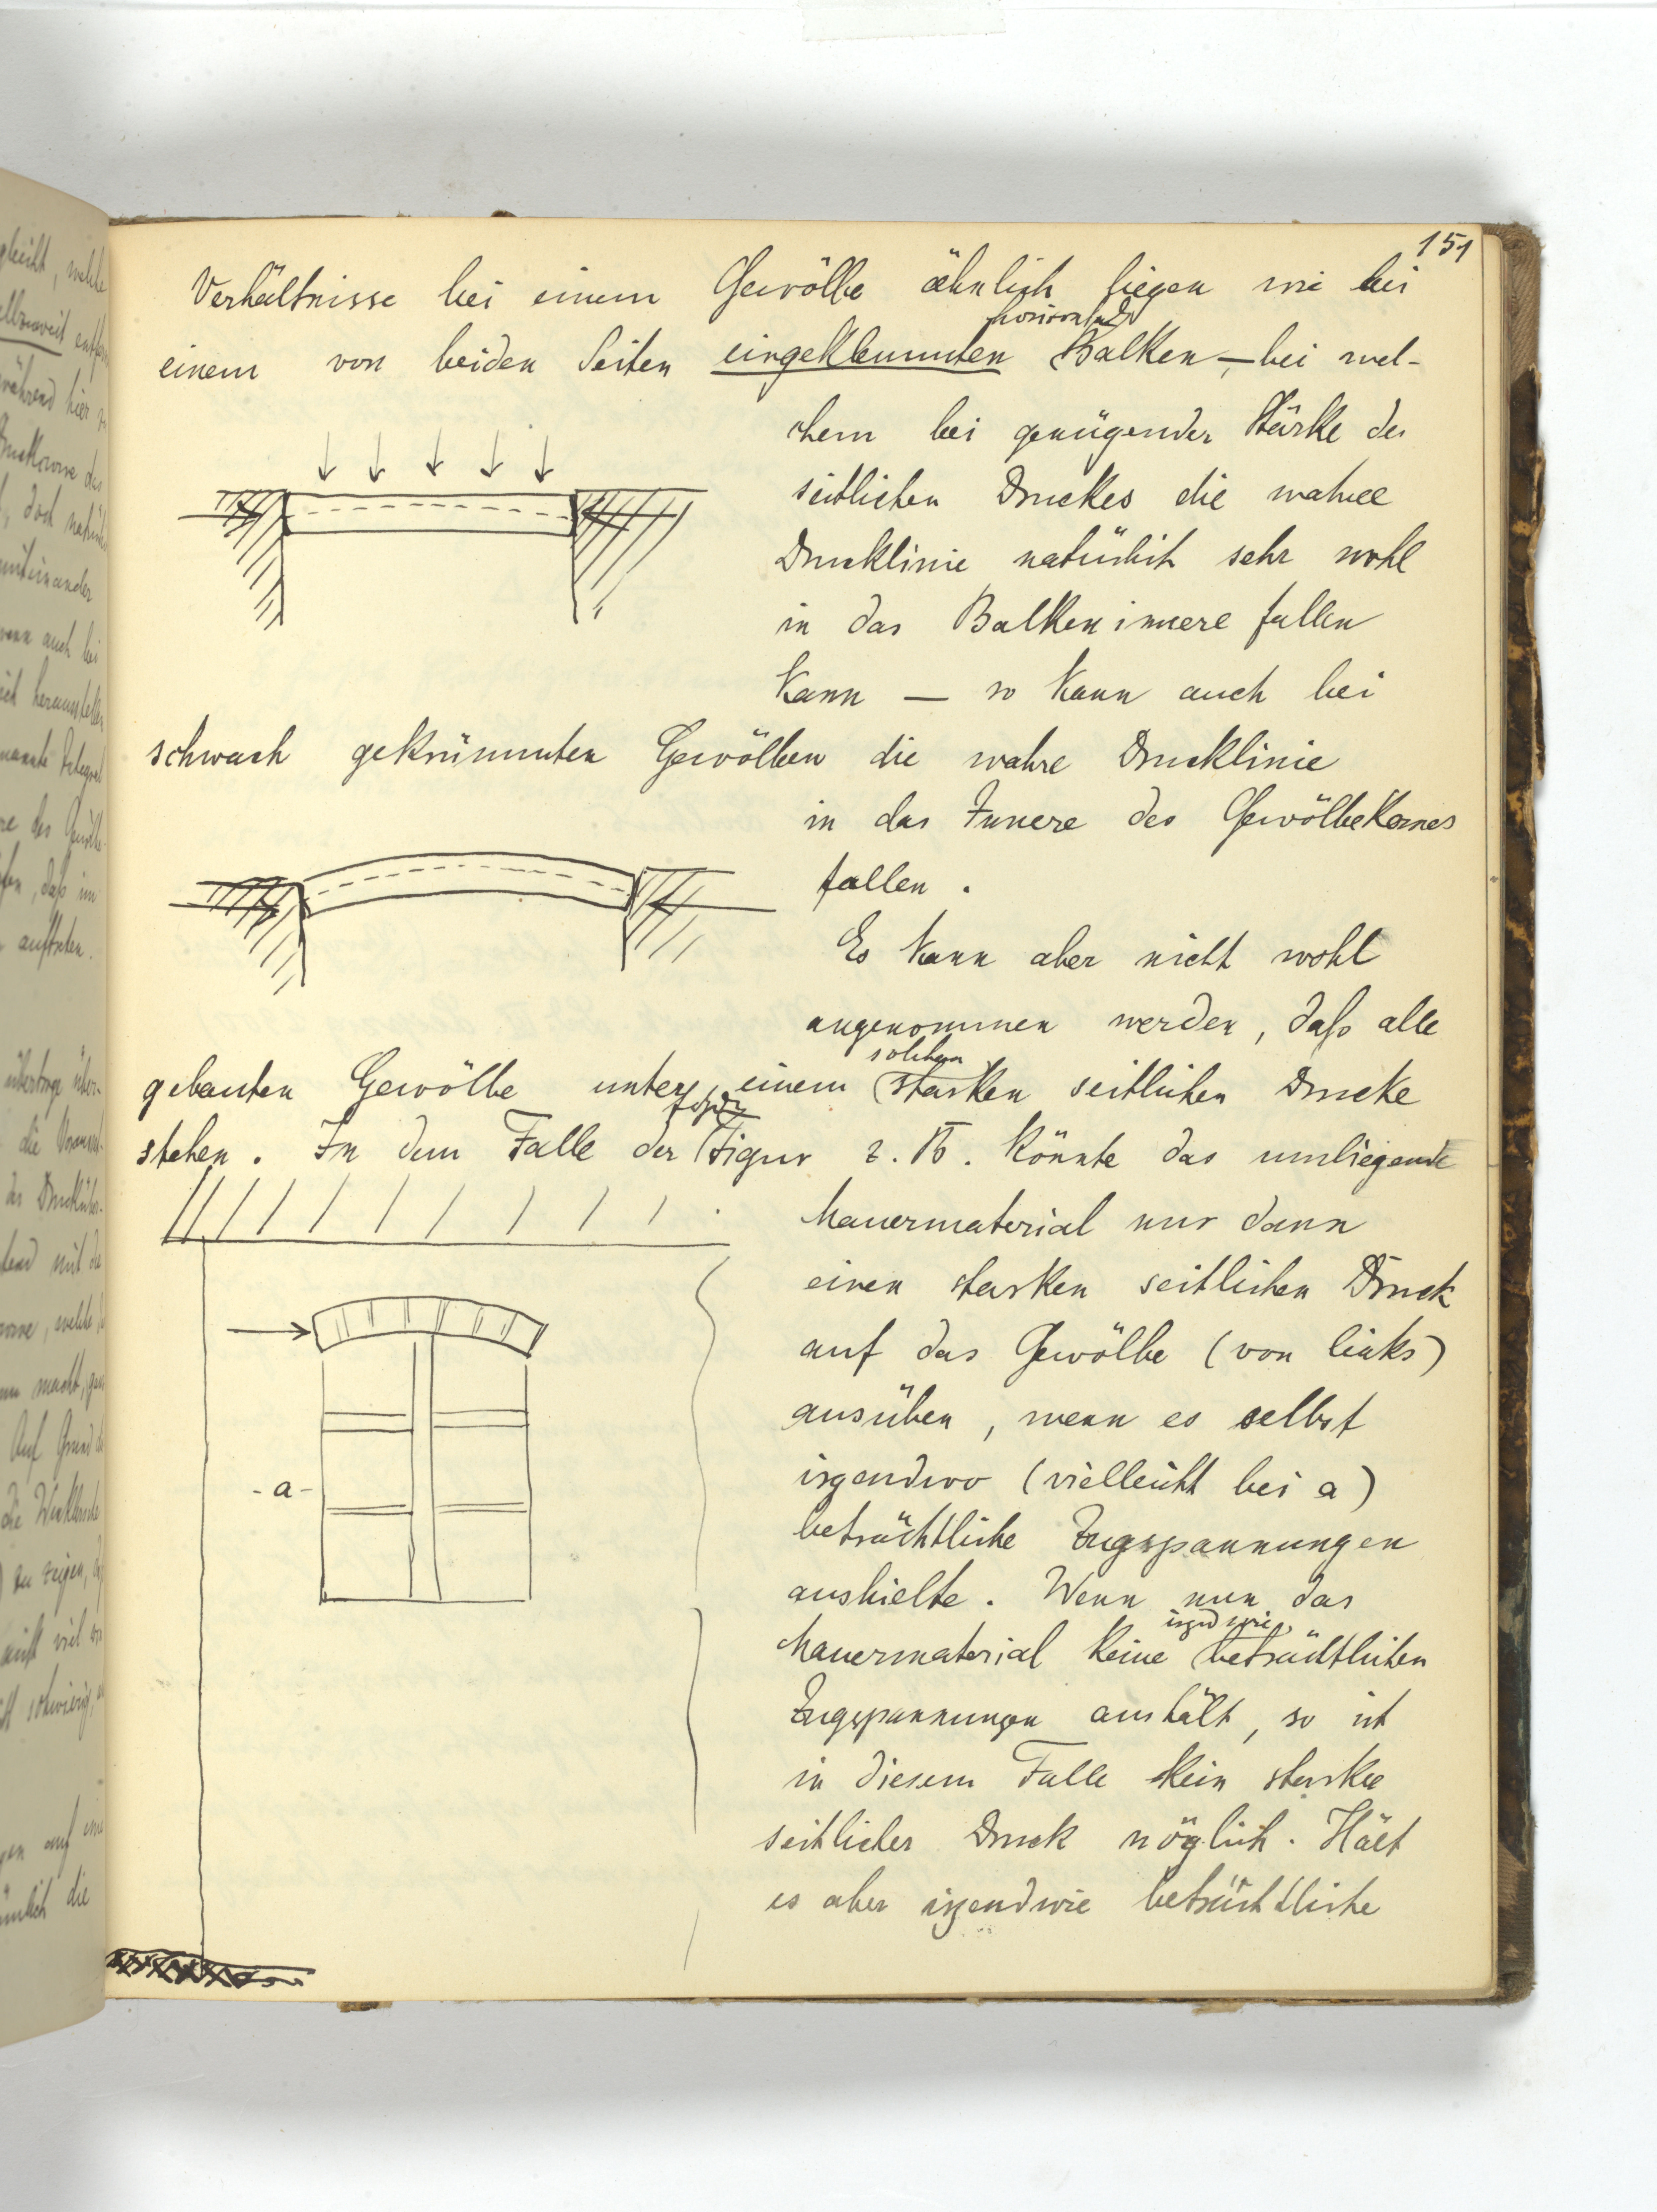 151
Verhältnisse bei einem Gewölbe ähnlich liegen wie bei
horizontalen
einem von beiden Seiten eingeklemmten Balken, – bei wel-
chem bei genügender Stärke des
seitlichen Druckes die wahre
Drucklinie natürlich sehr wohl
in das Balkeninnere fallen
kann — so kann auch bei
schwach gekrümmten Gewölben die wahre Drucklinie
in das Innere des Gewölbekernes
fallen.
Es kann aber nicht wohl
angenommen werden, daß alle
solchen
gebauten Gewölbe unter einem starken seitlichen Drucke
stehen. In dem Falle der Figur z.B. könnte das umliegende
Mauermaterial nur dann
einen starken seitlichen Druck
auf das Gewölbe (von links)
ausüben, wenn es selbst
irgendwo (vielleicht bei a)
beträchtliche Zugspannungen
aushielte. Wenn nun das
irgendwie
Mauermaterial keine beträchtlichen
Zugspannungen aushält, so ist
in diesem Falle kein starker
seitlicher Druck möglich. Hält
es aber irgendwie beträchtliche
- a -